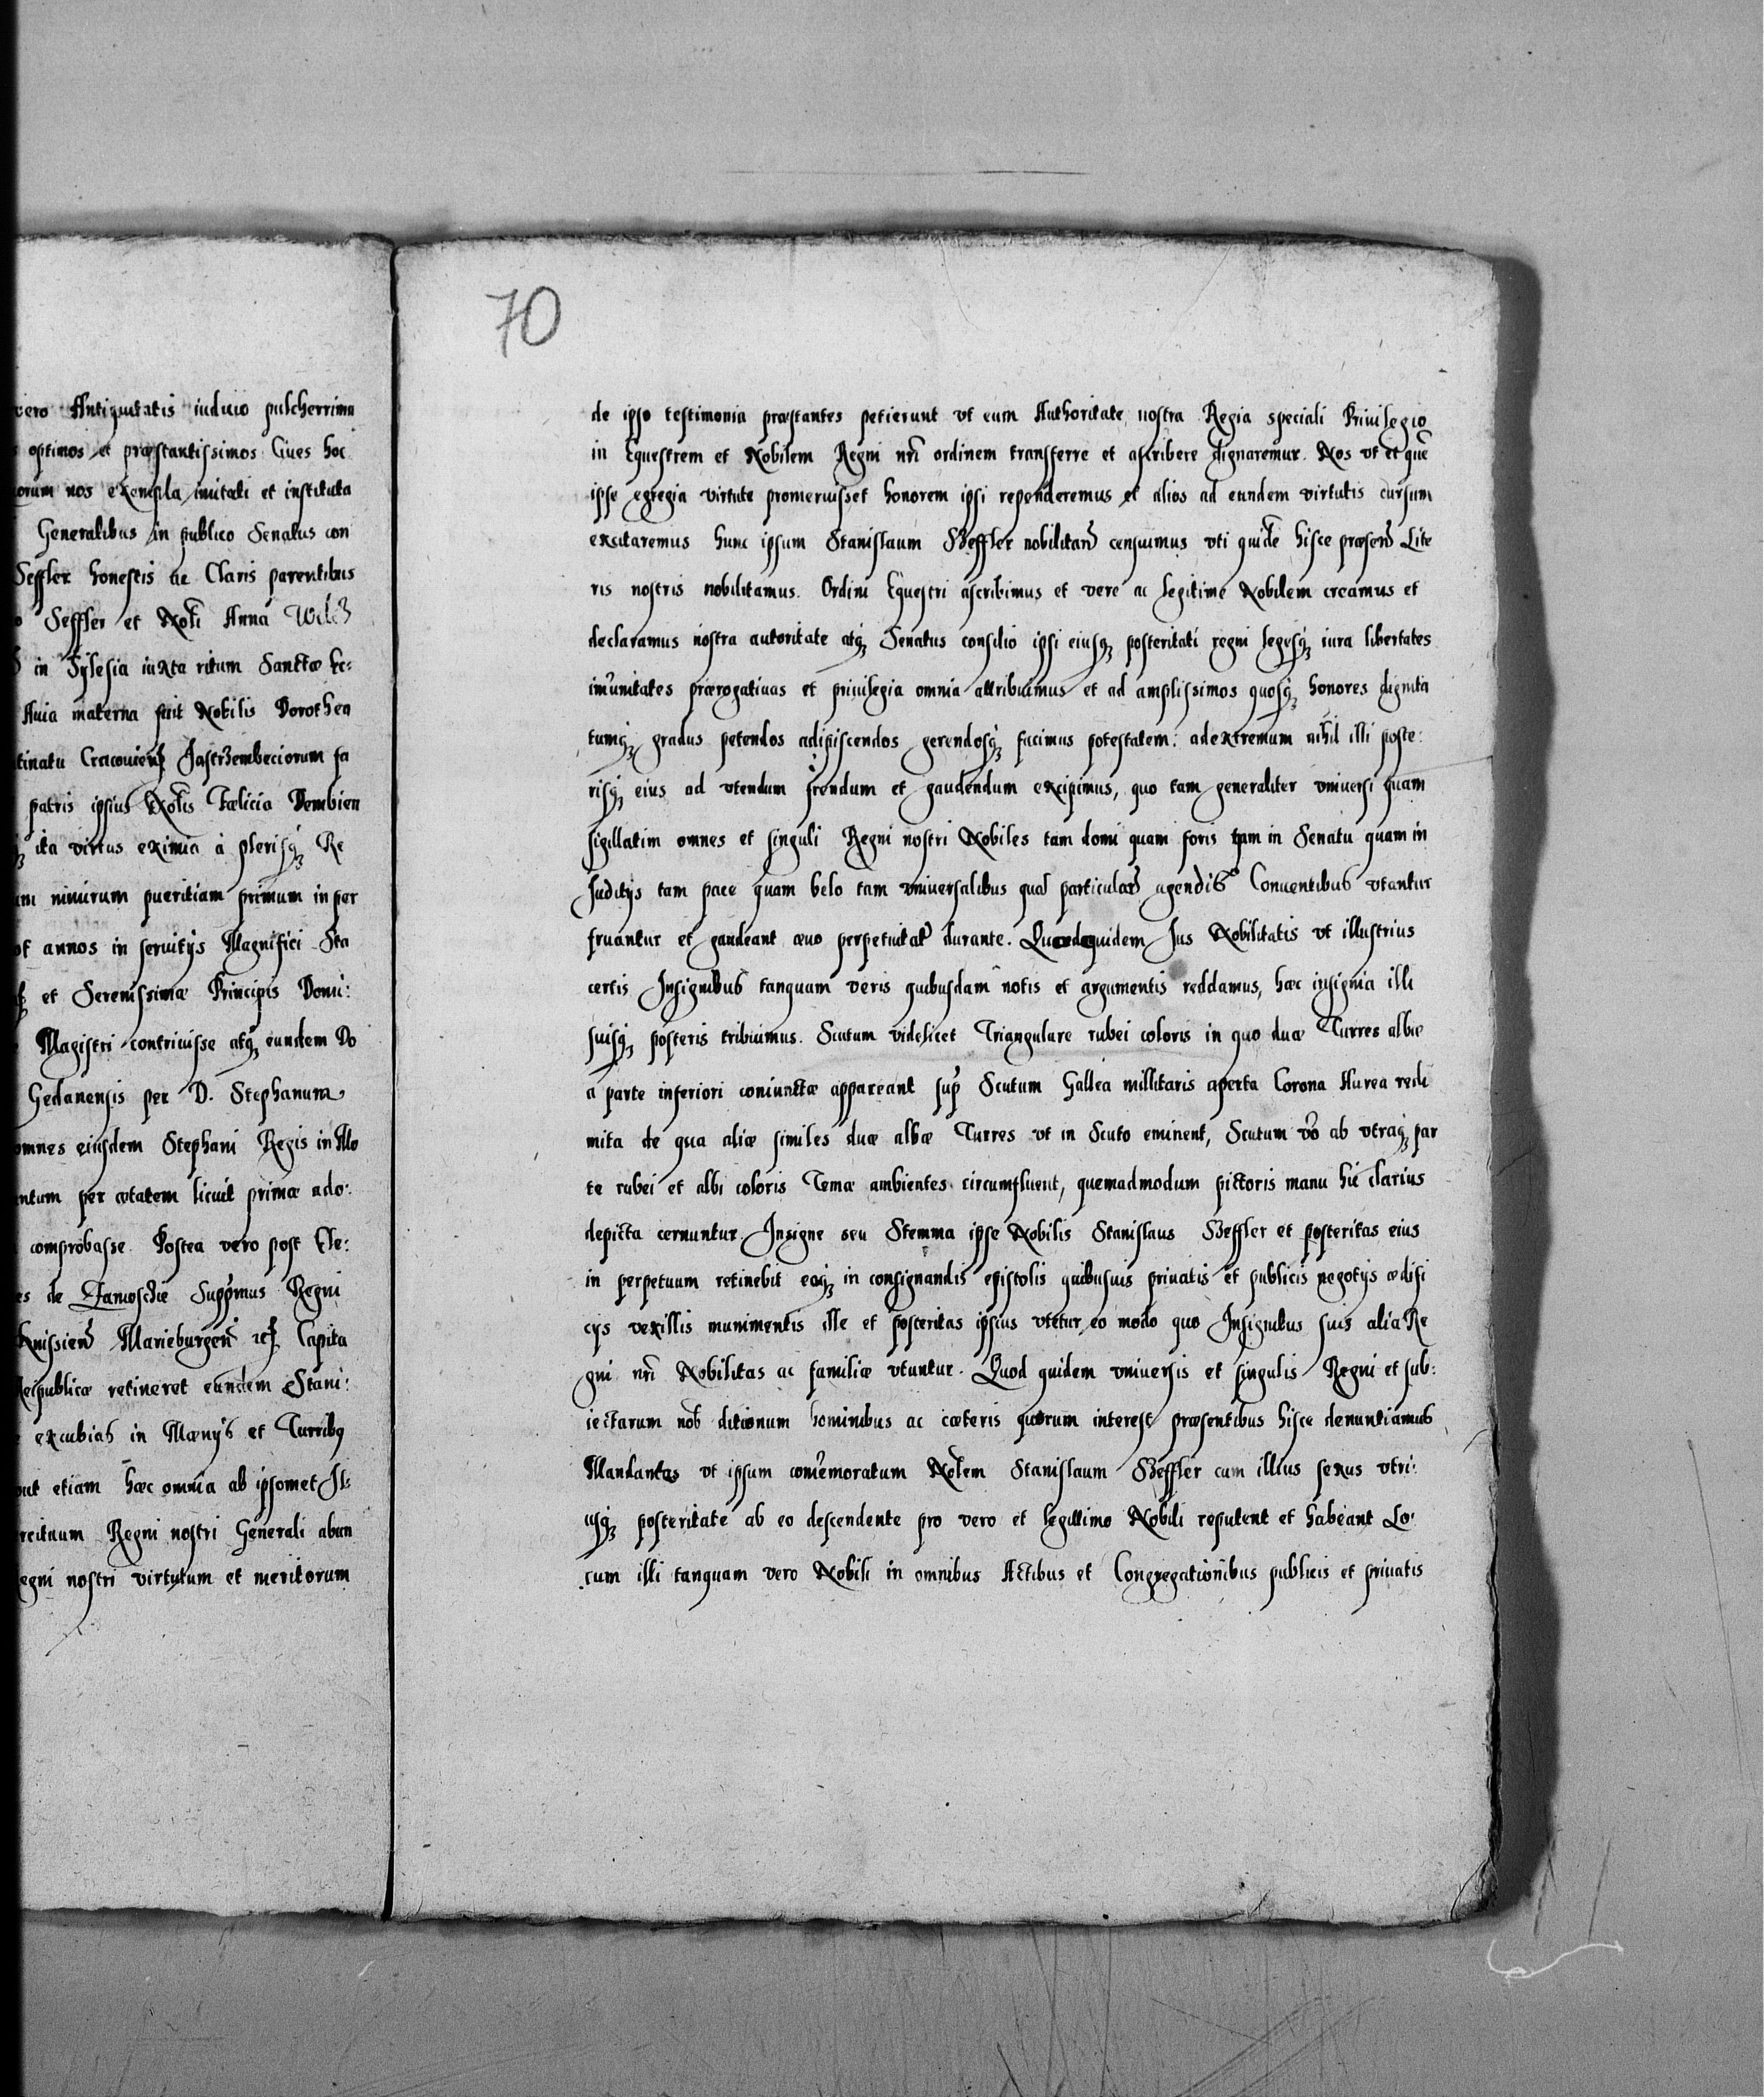 vero Antiquitatis iudicio pulcherrima
optimos et præstantissimos Ciues hoc
orum nos exempla imitati et instituta
Generalibus in publico Senatus con
Seffler honestis ac Claris parentibus
Seffler et Nobli Anna
in Sylesia iuxta ritum Sanctæ Ec:
Auia materna fuit Nobilis Dorothea
tinatu Cracouien Jastrzembeciorum fa
patris ipsius Noblis Fælicia Dembien
ita virtus eximia à plerisq Re
um nimirum pueritiam primum in per
ot annos in seruitys Magnifici Sta
et Serenissimæ Principis Domi:
Magistri contriuisse atq eundem Do
Gedanensis per D. Stephanum
omnes eiusdem Stephani Regis in Mo
ntum per ætatem licuit primæ ado:
comprobasse. Postea vero post Ele:
es de Zamoscie Suppremus Regni
Knissien Marieburgen etc Capita
Reipublicæ retineret eundem Stani:
excubias in Mænys et Turribq
ut etiam hæc omnia ab ipsomet Il:
rcituum Regni nostri Generali abun
egni nostri virtutum et meritorum
70
de ipso testimonia præstantes petierunt vt eum Authoritate nostra Regia speciali Priuilegio
in Equestrem et Nobilem Regni nri ordinem transferre et ascribere dignaremur. Nos vt et quē
ipse egregia virtute promeruisset honorem ipsi rependeremus et alios ad eundem virtutis cursum
excitaremus hunc ipsum Stanislaum Szeffler nobilitand censuimus vti quidē hisce præsen Lite
ris nostris nobilitamus. Ordini Equestri ascribimus et vere ac legitime Nobilem creamus et
declaramus nostra autoritate atq Senatus consilio ipsi eiusq posteritati regni legesq iura libertates
imūnitates prærogatiuas et priuilegia omnia attribuimus et ad amplissimos quosq honores dignita
tumq gradus petendos adipiscendos gerendosq facimus potestatem: adextremum nihil illi poste:
risq eius ad vtendum frendum et gaudendum excipimus, quo tam generaliter vniuersi quam
sigillatim omnes et singuli Regni nostri Nobiles tam domi quam foris tam in Senatu quam in
Juditys tam pace quam belo tam vniuersalibus quā particular agendis Conuentibus vtantur
fruantur et gaudeant æuo perpetuitat durante. Quodquidem Jus Nobilitatis vt illustrius
certis Insignibus tanquam veris quibusdam notis et argumentis reddamus, hæc insignia illi
suisq posteris tribuimus. Scutum videlicet Triangulare rubei coloris in quo duæ Turres albæ
a parte inferiori coniunctæ appareant sup Scutum Gallea millitaris aperta Corona Aurea redi
mita de qua aliæ similes duæ albæ Turres vt in Scuto eminent, Scutum vō ab vtraq par
te rubei et albi coloris Temæ ambientes circumfluent, quemadmodum pictoris manu hic clarius
depicta cernuntur. Insigne seu Stemma ipse Nobilis Stanislaus Szeffler et posteritas eius
in perpetuum retinebit eoq in consignandis epistolis quibusuis priuatis et publicis negotys ædifi
cys vexillis munimentis ille et posteritas ipsius vtetur eo modo quo Insignibus suis alia Re
gni nri Nobilitas ac familiæ vtuntur. Quod quidem vniuersis et singulis Regni et sub:
iectarum nob ditionum hominibus ac cæteris quorum interest præsentibus hisce denuntiamus
Mandantes vt ipsum comemoratum Noblem Stanislaum Szeffler cum illius sexus vtri:
usq posteritate ab eo descendente pro vero et legittimo Nobili reputent et habeant Lo:
cum illi tanquam vero Nobili in omnibus Actibus et Congregationibus publicis et priuatis